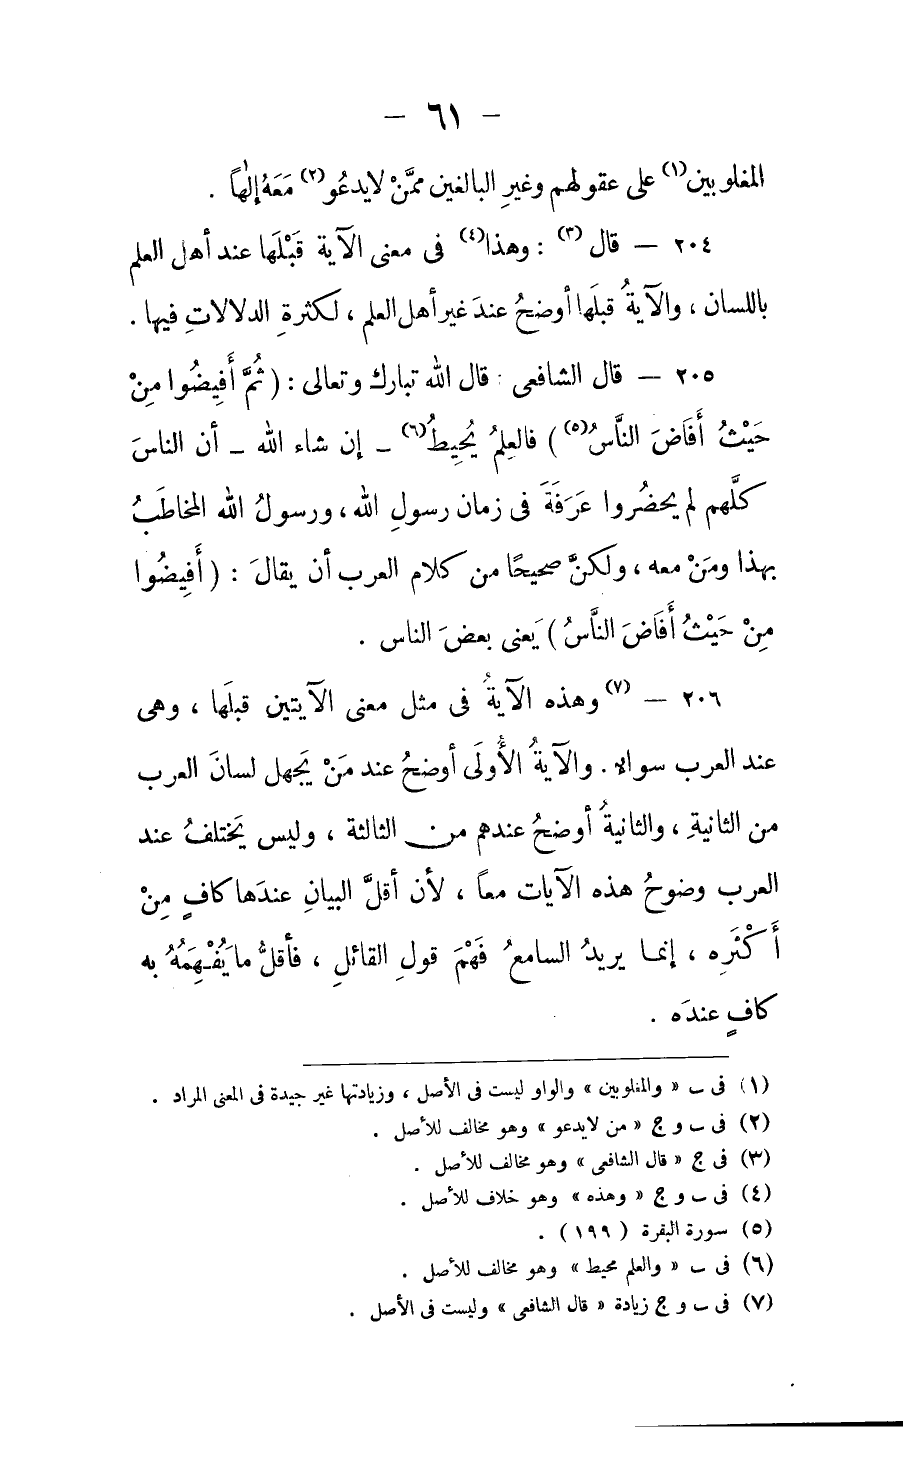 — ٦١ —
المغلوبين(١) على عقولهم وغيرِ البالغين ممَّنْ لا يدعُو(٢) مَعَهُ إلٰهاً .
٢٠٤ — قال(٣) : وهذا(٤) فى معنى الآية قَبْلَها عند أهل العلم
باللسان ، والآيةُ قبلَها أوضحُ عندَ غير أهل العلم ، لكثرةِ الدلالاتِ فيها .
٢٠٥ — قال الشافعى : قال الله تبارك وتعالى : ( ثُمَّ أَفِيضُوا مِنْ
حَيْثُ أَفَاضَ النَّاسُ(٥) ) فالعِلمُ يُحِيطُ(٦) ـ إن شاء الله ـ أن الناسَ
كلَّهم لم يحضُروا عَرَفَةَ فى زمان رسولِ الله ، ورسولُ الله المخاطَبُ
بهذا ومَنْ معه ، ولكنَّ صحيحًا من كلام العرب أن يقالَ : ( أَفِيضُوا
مِنْ حَيْثُ أَفَاضَ النَّاسُ ) يَعنى بعضَ الناس .
٢٠٦ — (٧) وهذه الآيةُ فى مثل معنى الآيتين قبلَها ، وهى
عند العرب سواء . والآيةُ الأُولَى أوضحُ عند مَنْ يَجهل لسانَ العرب
من الثانيةِ ، والثانيةُ أوضحُ عندهم من الثالثة ، وليس يَختلفُ عند
العرب وضوحُ هذه الآيات معاً ، لأن أقلَّ البيانِ عندَها كافٍ مِنْ
أَكْثَرِه ، إنما يريدُ السامعُ فَهْمَ قولِ القائلِ ، فأقلُّ ما يُفْهِمُهُ به
كافٍ عندَه .
(١) فى ـ ـ « والمغلوبين » والواو ليست فى الأصل ، وزيادتها غير جيدة فى المعنى المراد .
(٢) فى ب و ج « من لا يدعو » وهو مخالف للأصل .
(٣) فى ج « قال الشافعى » وهو مخالف للأصل .
(٤) فى ب و ج « وهذه » وهو خلاف للأصل .
(٥) سورة البقرة ( ١٩٩ ) .
(٦) فى ب « والعلم محيط » وهو مخالف للأصل .
(٧) فى ب و ج زيادة « قال الشافعى » وليست فى الأصل .